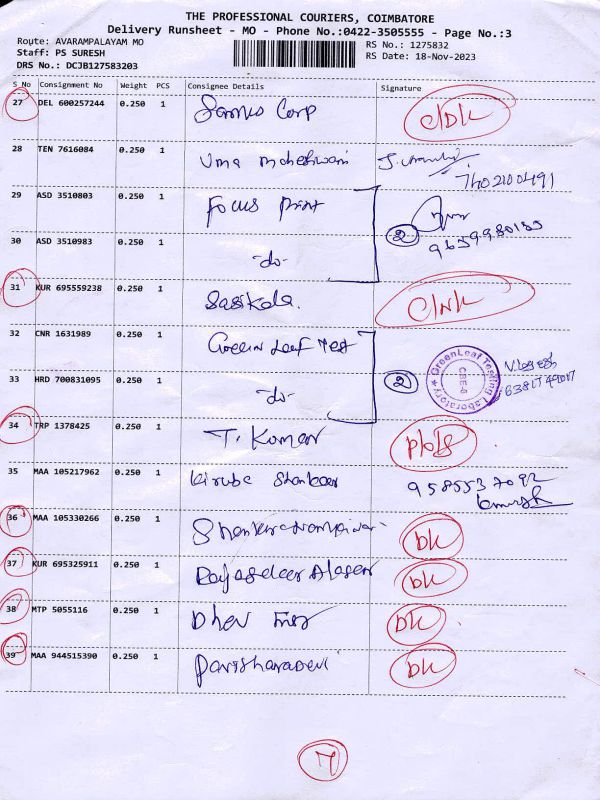 THE PROFESSIONAL COURIERS, COIMBATORE
Delivery Runsheet - MO - Phone No.:0422-3505555 - Page No.:3
Route: AVARAMPALAYAM MO RS No.: 1275832
Staff: PS SURESH RS Date: 18-Nov-2023
DRS No.: DCJB127583203
S No Consignment No Weight PCS Consignee Details Signature
27 DEL 600257244 0.250 1 Corp
28 TEN 7616084 0.250 1 Uma Maheshwari
7402100491
29 ASD 3510803 0.250 1 Focus Print
2
30 ASD 3510983 0.250 1 -do-
31 KUR 695559238 0.250 1 Sasikala.
32 CNR 1631989 0.250 1 Green Leaf Test
GreenLeaf Testing Laboratory
CBE-6
33 HRD 700831095 0.250 1 -do- 2
34 TRP 1378425 0.250 1 T. Kumar
35 MAA 105217962 0.250 1 Kiruba Shankar 9585537092
36 MAA 105330266 0.250 1 DK
37 KUR 695325911 0.250 1 DK
38 MTP 5055116 0.250 1 Dhev DK
39 MAA 944515390 0.250 1 DK
7